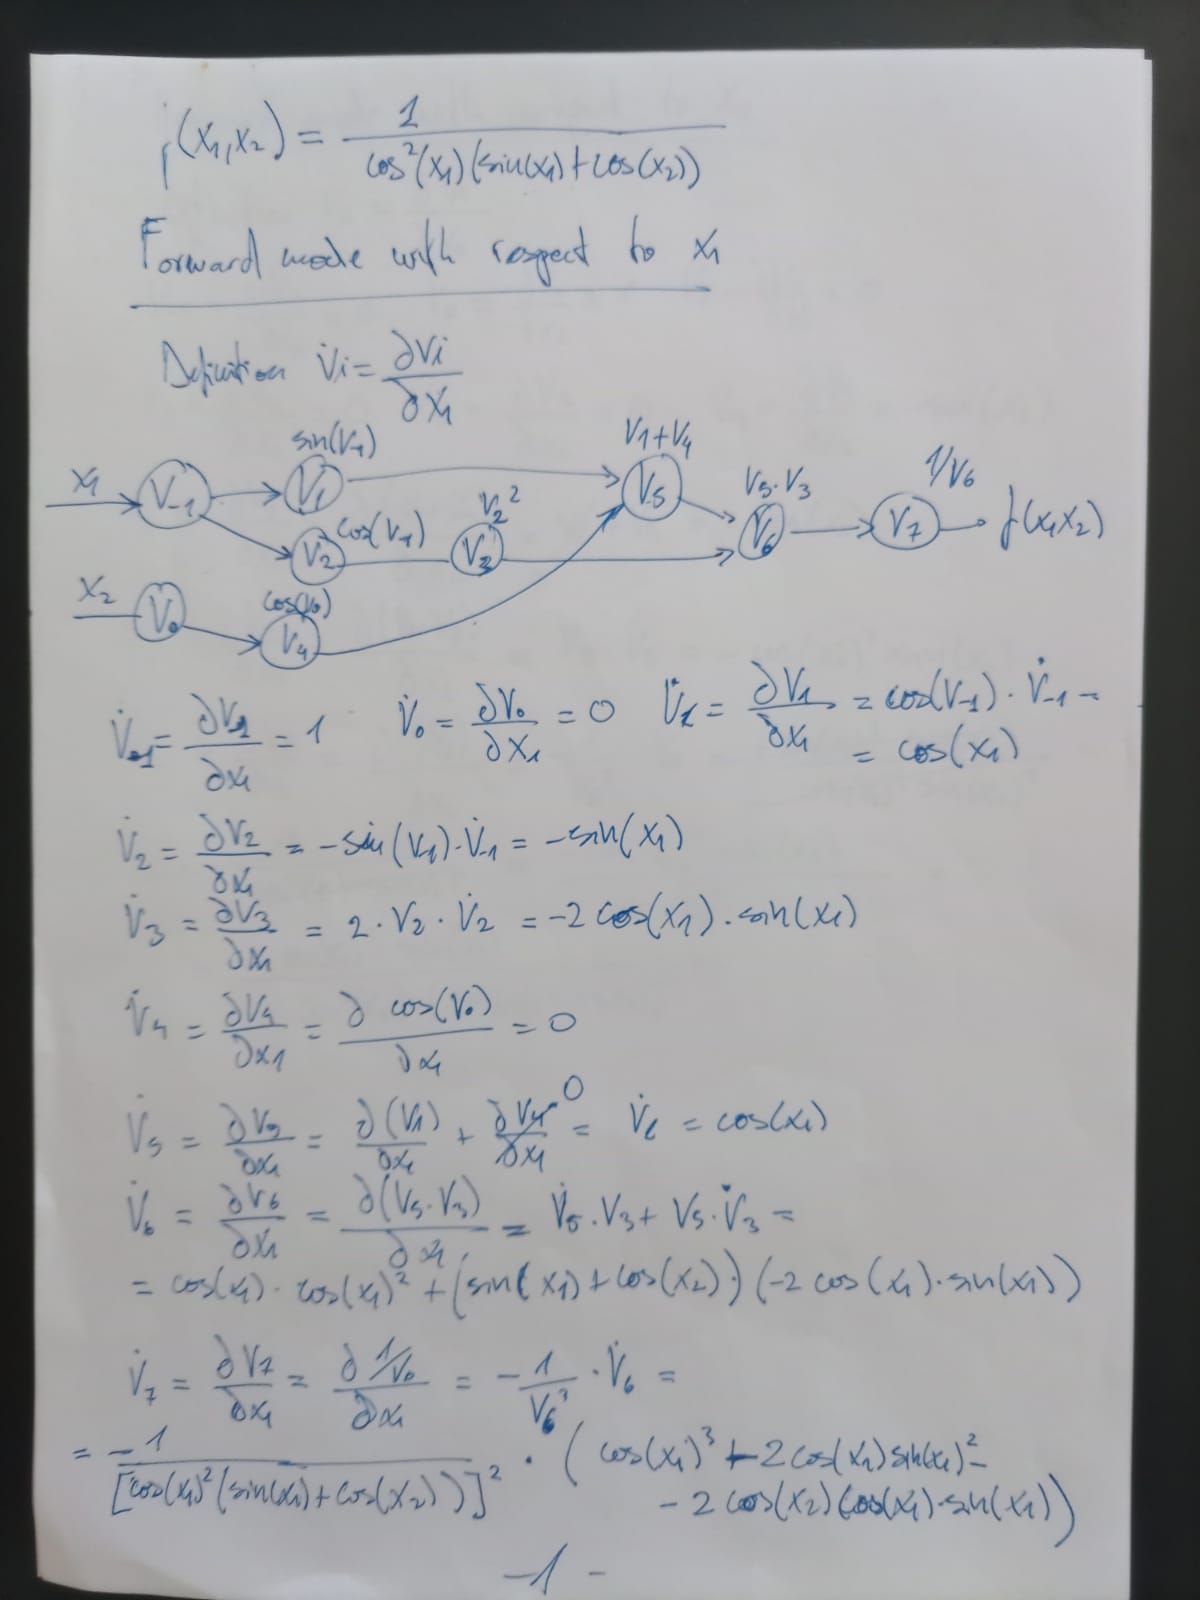 f(x₁,x₂) = 1 / (cos²(x₁)(sin(x₁)+cos(x₂)))
Forward mode with respect to x₁
Definition V̇i = ∂Vi/∂x₁
sin(V₋₁) V₁+V₄
x₁ V₋₁ V₁ V₂² V₅ V₅·V₃ 1/V₆
cos(V₋₁) V₂ V₃ V₆ V₇ f(x₁x₂)
x₂ V₀ cos(V₀) V₄
V̇₋₁ = ∂V₋₁/∂x₁ = 1 V̇₀ = ∂V₀/∂x₁ = 0 V̇₁ = ∂V₁/∂x₁ = cos(V₋₁)·V̇₋₁ =
= cos(x₁)
V̇₂ = ∂V₂/∂x₁ = -sin(V₋₁)·V̇₋₁ = -sin(x₁)
V̇₃ = ∂V₃/∂x₁ = 2·V₂·V̇₂ = -2cos(x₁)·sin(x₁)
V̇₄ = ∂V₄/∂x₁ = ∂cos(V₀)/∂x₁ = 0
V̇₅ = ∂V₅/∂x₁ = ∂(V₁)/∂x₁ + ∂V₄/∂x₁ 0 = V̇₁ = cos(x₁)
V̇₆ = ∂V₆/∂x₁ = ∂(V₅·V₃)/∂x₁ = V̇₅·V₃ + V₅·V̇₃ =
= cos(x₁)·cos(x₁)² + (sin(x₁)+cos(x₂))·(-2cos(x₁)·sin(x₁))
V̇₇ = ∂V₇/∂x₁ = ∂1/V₆/∂x₁ = -1/V₆²·V̇₆ =
= -1/[cos(x₁)²(sin(x₁)+cos(x₂))]² · (cos(x₁)³ - 2cos(x₁)sin(x₁)² -
- 2cos(x₂)cos(x₁)·sin(x₁))
-1-